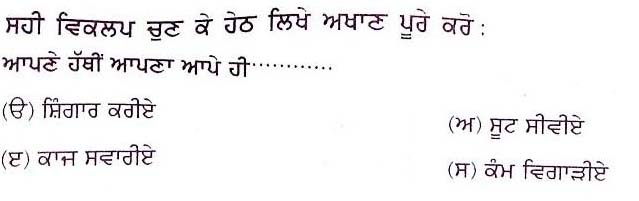 ਸਹੀ ਵਿਕਲਪ ਚੁਣ ਕੇ ਹੇਠ ਲਿਖੇ ਅਖਾਣ ਪੂਰੇ ਕਰੋ :
ਆਪਣੇ ਹੱਥੀਂ ਆਪਣਾ ਆਪੇ ਹੀ.............
(ੳ) ਸ਼ਿੰਗਾਰ ਕਰੀਏ
(ਅ) ਸੂਟ ਸੀਵੀਏ
(ੲ) ਕਾਜ ਸਵਾਰੀਏ
(ਸ) ਕੰਮ ਵਿਗਾੜੀਏ